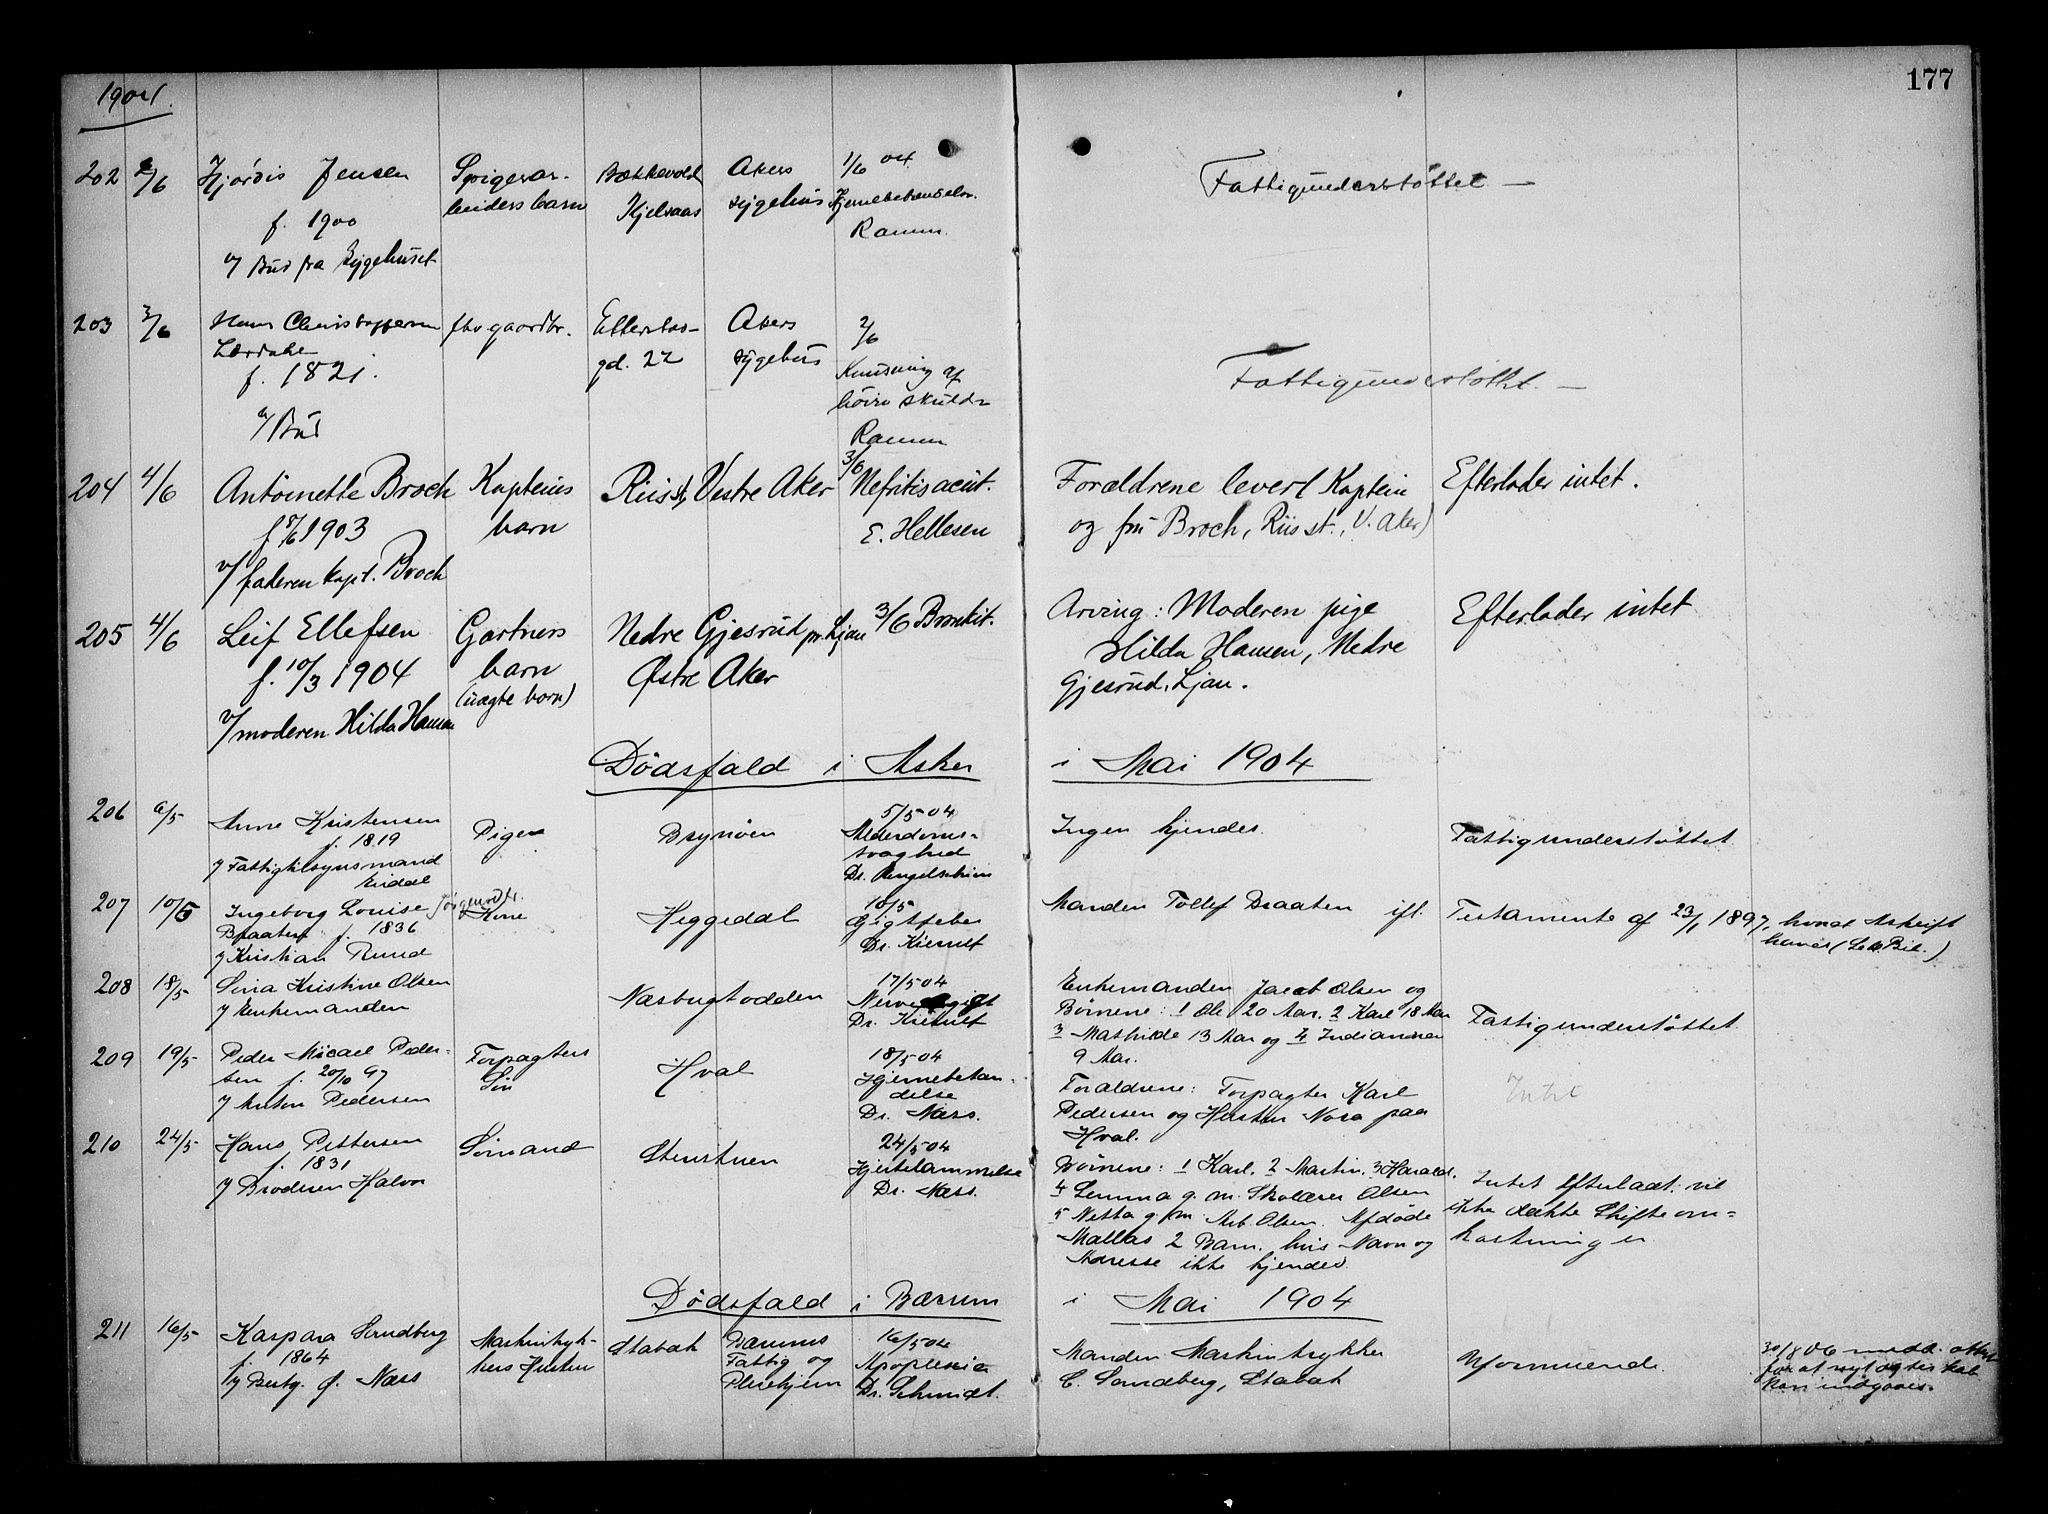 1904.
177
202 2/6 Hjørdis Jensen
f. 1900
v/ Bud fra Sygehuset
Spigerar-
beiders barn
Bækkevold
Kjelsaas
Akers
sygehus
1/6 04
Ramm.
Fattigunderstøttet —
203 3/6 Hans Christophersen
f. 1821.
v/ Bud
fhv gaardbr.
Etterstad-
gd. 22
Akers
sygehus
2/6
Knusning af
høire skulder
Ramm
Fattigunderstøttet. —
204 4/6 Antoinette Broch
1903
v/ faderen kapt. Broch
Kapteins
barn
Riis st, Vestre Aker
3/6 Nefritis acut.
E. Hellesen
Forældrene lever (Kaptein
og fru Broch, Riis st., V. Aker)
Efterlader intet.
205 4/6 Leif Ellefsen
f. 10/3 1904
v/ moderen Hilda Hansen
Gartners
barn
(uægte barn)
Nedre Gjesrud pr. Ljan
Østre Aker
3/6 Bronkit.
Arving: Moderen pige
Hilda Hansen, Nedre
Gjesrud, Ljan.
Efterlader intet
Dødsfald i Asker i Mai 1904
206 6/5 Anne Kristensen
f. 1819
v/ Fattigtilsynsmand
Pige
Brynøen
5/5 04
Alderdoms-
svaghed
Dr. Engelschiøn
Ingen kjendes.
Fattigunderstøttet
207 10/5 Ingeborg Louise Jørgensdtr.
Braaten f. 1836
v/ Kristian Ruud
Kone
Heggedal
10/5
Gigtfeber
Dr. Kierulf
Manden Tollef Braaten ifl.
Testamente af 23/1 1897, hvoraf Afskrift
208 18/5 Lina Kristine Olsen
v/ Enkemanden
Næsbugtodden
17/5 04
Dr. Kierulf
Enkemanden Jacob Olsen og
Børnene: 1 Ole 20 Aar, 2 Karl 18 Aar
3 Mathilde 13 Aar og 4 Indianna
9 Aar.
Fattigunderstøttet
209 19/5 Peder Micael Peder-
sen f. 20/10 97
v/ Anton Pedersen
Forpagters
Søn
Hval
18/5 04
Hjernebetæn-
delse
Dr. Næss.
Forældrene: Forpagter Karl
Pedersen og Hustru Nora paa
Hval.
Intet
210 24/5 Hans Pettersen
f. 1831
v/ Broderen Halvor
Sømand
Stenstuen
24/5 04
Hjertelammelse
Dr. Næss.
Børnene: 1 Karl, 2 Martin, 3 Harald,
4 Lemma g. m. Skolærer Olsen
5 Netta g. m. Arb. Olsen. Afdøde
2 Barn, hvis Navn og
Adresse ikke kjendes
Intet efterladt. vil
ikke dække Skifteom-
kostninger
Dødsfald i Bærum i Mai 1904
211 16/5 Kaspara Sundberg
f. 1864
v/ Bestg. O. Næss
Maskintryk-
kers Hustru
Stabæk
Bærums
Fattig og
Pleiehjem
16/5 04
Apoplexia
Dr. Schmidt.
Manden Maskintrykker
C. Sundberg, Stabæk
Uformuende.
30/8 06 medd. attest
for at nyt ægteskab
kan indgaaes.